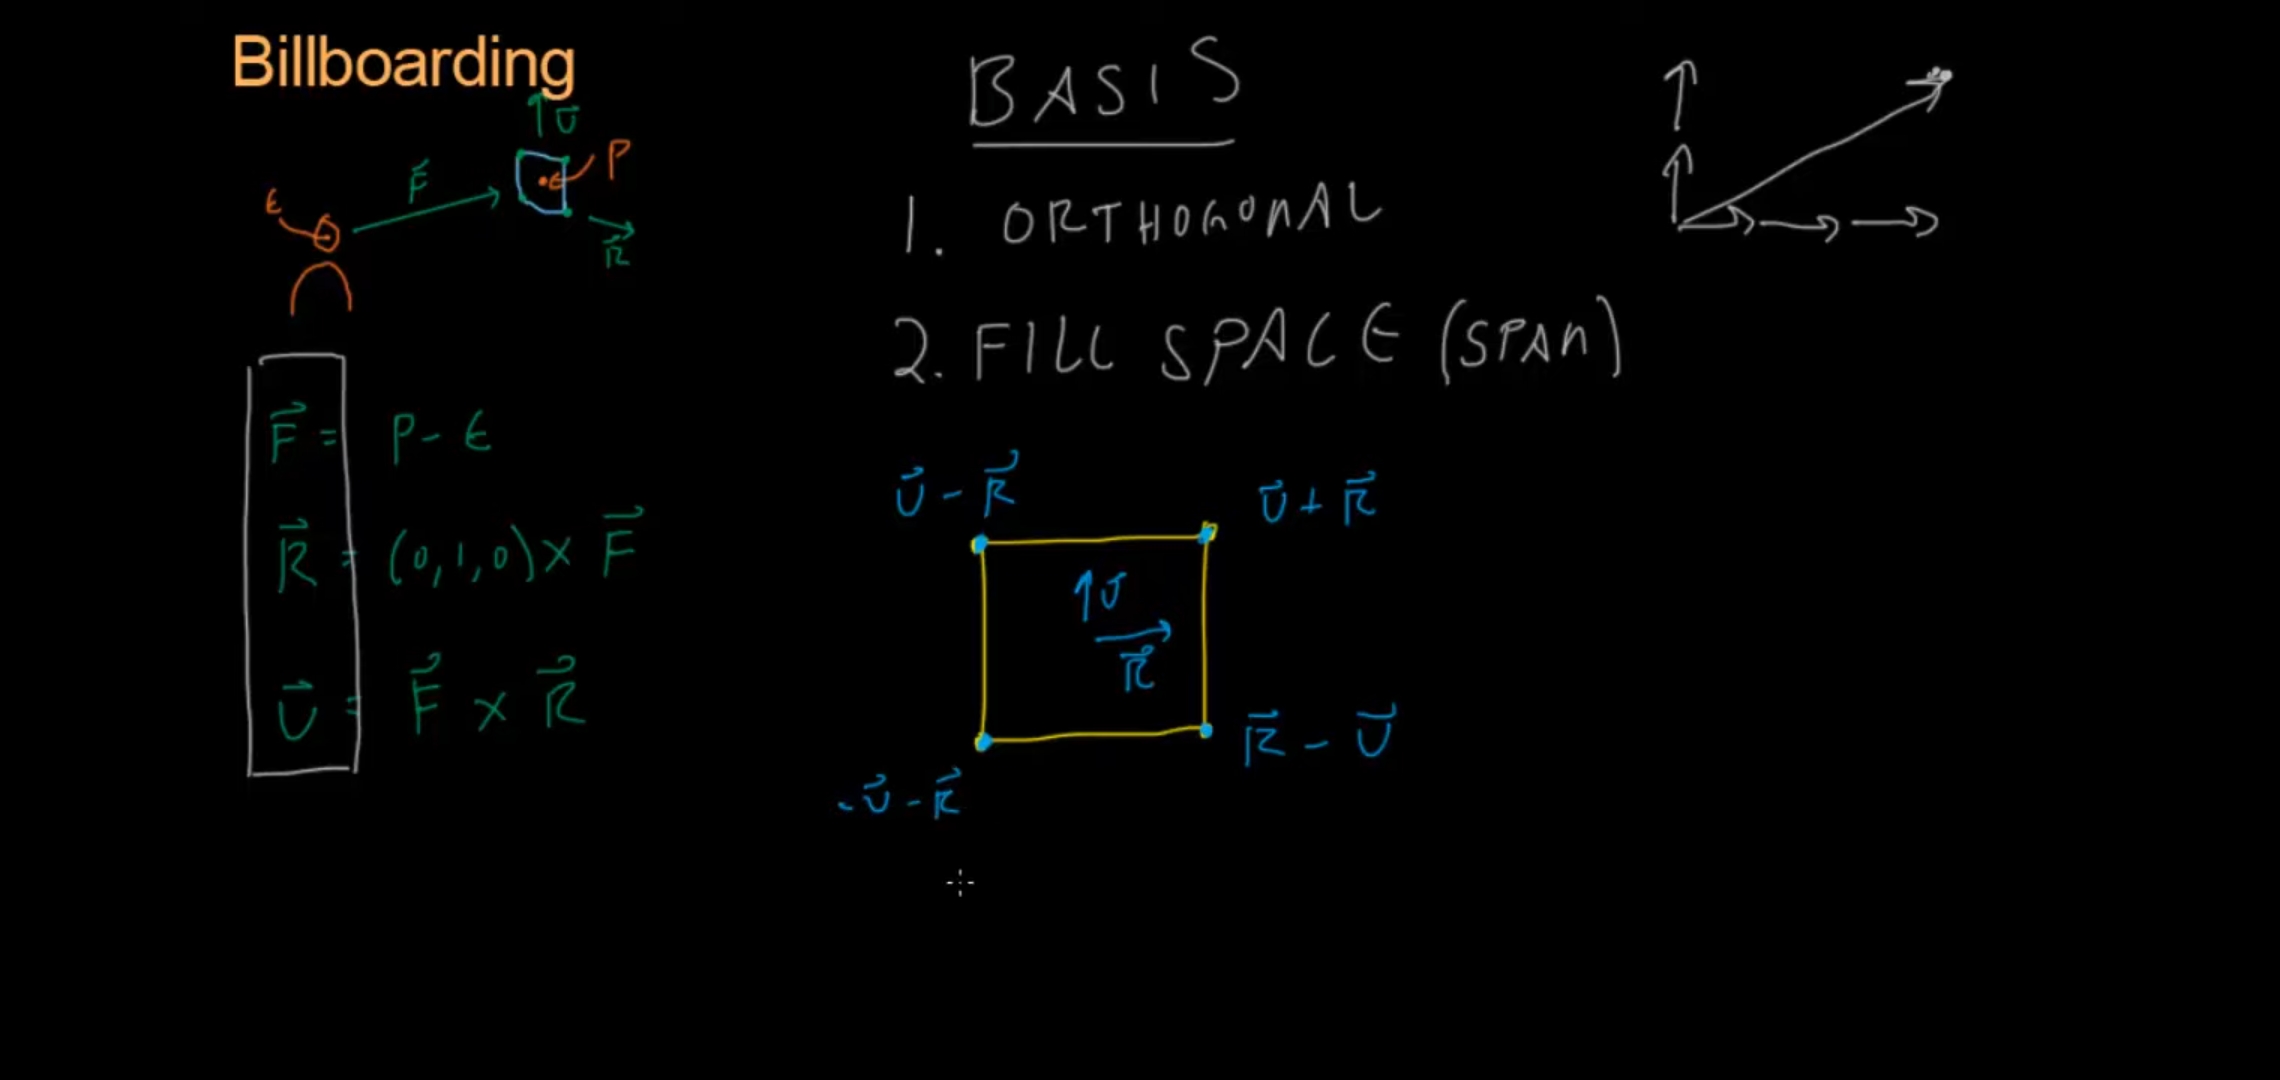 Billboarding
U⃗
P
F⃗
E
R⃗
F⃗ = P - E
R⃗ = (0,1,0) × F⃗
U⃗ = F⃗ × R⃗
BASIS
1. ORTHOGONAL
2. FILL SPACE (SPAN)
U⃗ - R⃗
U⃗ + R⃗
U
R⃗
R⃗ - U⃗
-U⃗ - R⃗